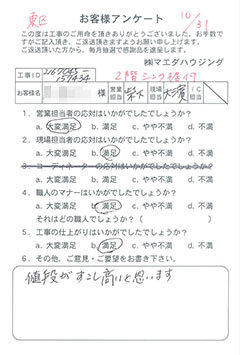 東区
お客様アンケート
10/31
この度は工事のご用命を頂きありがとうございました。お手数で
すがご記入頂き、ご返送頂きますようお願い申し上げます。
ご返送頂いた方から、毎月抽選で感謝品を進呈します。
㈱マエダハウジング
工事ID
2階
お客様名
様
営業担当
現場担当
IC担当
1. 営業担当者の応対はいかがでしたでしょうか?
a. 大変満足 b. 満足 c. やや不満 d. 不満
2. 現場担当者の応対はいかがでしたでしょうか?
a. 大変満足 b. 満足 c. やや不満 d. 不満
3. コーディネーターの応対はいかがでしたでしょうか?
a. 大変満足 b. 満足 c. やや不満 d. 不満
4. 職人のマナーはいかがでしたでしょうか?
a. 大変満足 b. 満足 c. やや不満 d. 不満
それはどの職人でしょうか?( )
5. 工事の仕上がりはいかがでしたでしょうか?
a. 大変満足 b. 満足 c. やや不満 d. 不満
6. その他、ご意見・ご要望をお書き下さい。
値段がすこし高いと思います